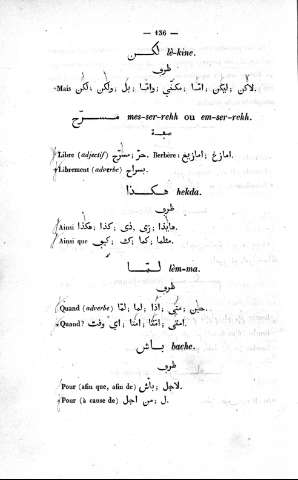 — 136 —
لكن lè-kine.
ظرف
Mais لاكن; ليكن; امّا; مكنّي; وامّا; بل; ولكن; لكن.
مسرّح mes-ser-rehh ou em-ser-rehh.
صفة
Libre (adjectif) حرّ; مسرّح. Berbère: امازغ; امازيغ.
Librement (adverbe) بسراح.
هكذا hekda.
ظرف
Ainsi هايذا; زي; ذي; كذا; هكذا.
Ainsi que مثلما; كما; ك; كيف.
لمّا lèm-ma.
ظرف
Quand (adverbe) حين; متى; اذا; لما; لمّا.
Quand? امتى; امتا; اي وقت.
باش bache.
ظرف
Pour (afin que, afin de) لاجل; باش.
Pour (à cause de) ل; من اجل.